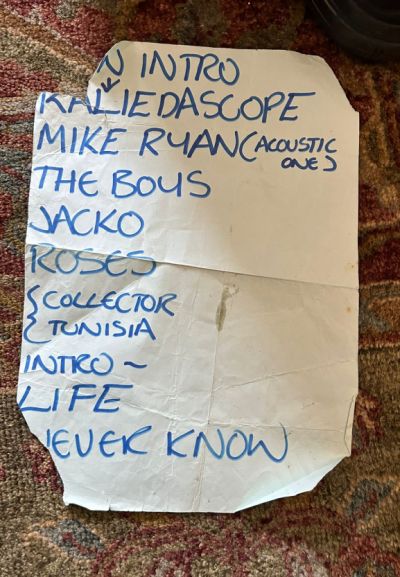 N INTRO
KALIEDASCOPE
MIKE RYAN (ACOUSTIC
ONE)
THE BOYS
JACKO
ROSES
{ COLLECTOR
{ TUNISIA
INTRO ~
LIFE
EVER KNOW